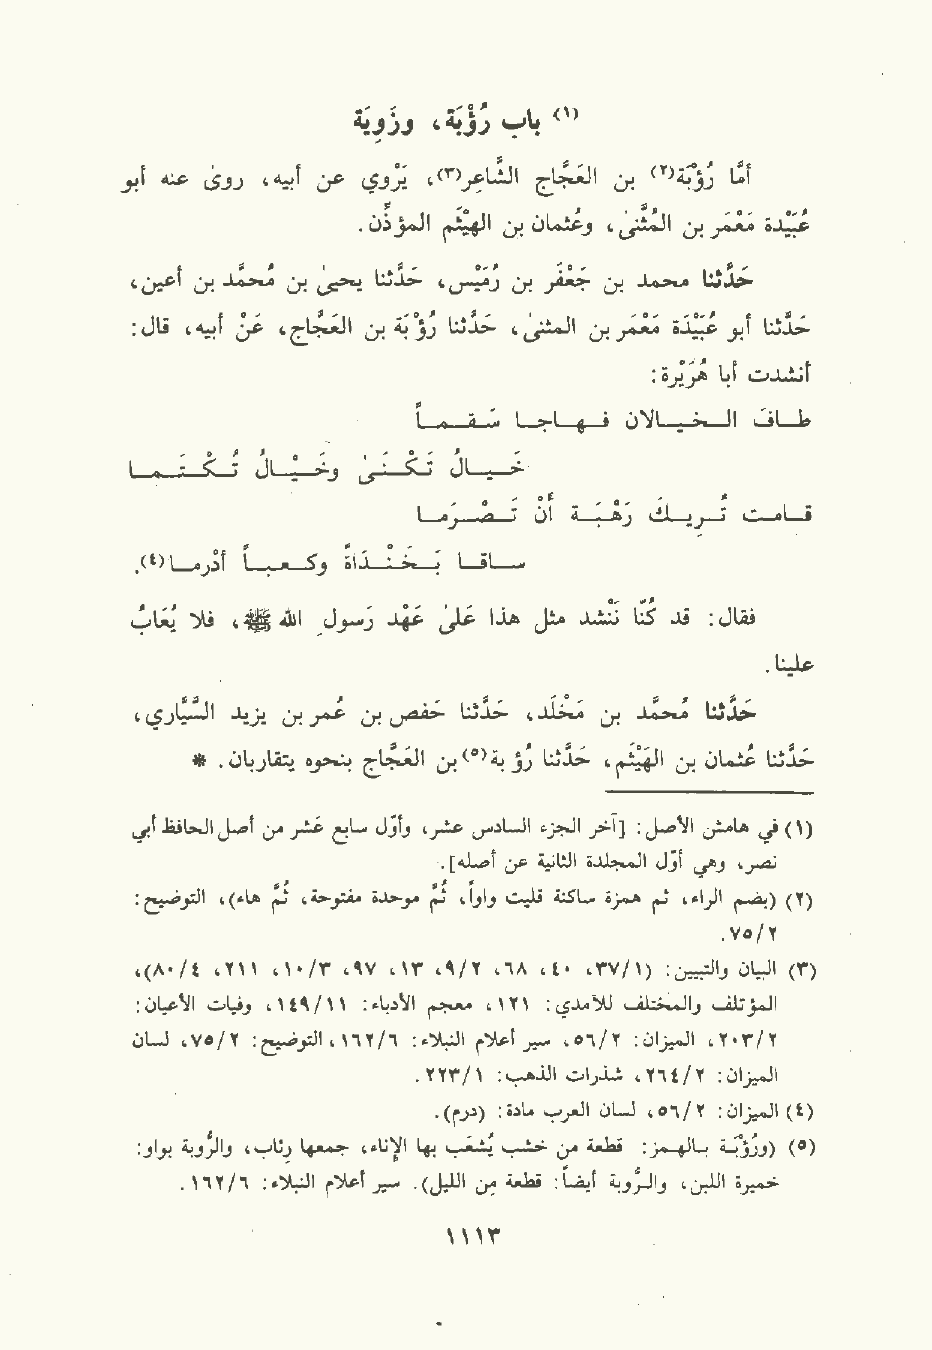 (١) باب رُؤْبَة ، وزَوِيَة
أمَّا رُؤْبَة(٢) بن العَجَّاج الشَّاعِر(٣)، يَرْوي عن أبيه، روَىٰ عنه أبو
عُبَيْدة مَعْمَر بن المُثَنىٰ، وعُثمان بن الهيْثَم المؤذِّن.
حَدَّثنا محمد بن جَعْفَر بن رُمَيْس، حَدَّثنا يحيىٰ بن مُحمَّد بن أعين،
حَدَّثنا أبو عُبَيْدَة مَعْمَر بن المثنىٰ، حَدَّثنا رُؤْبَة بن العَجَّاج، عَنْ أبيه، قال:
أنشدت أبا هُرَيْرة:
طـاف الـخـيـالان فـهـاجـا سَـقـمـاً
خَـيـالُ تـكْـنَـىٰ وخَـيْـالُ تُـكْـتَـمـا
قـامـت تُـرِيـك رَهْـبَـة أنْ تَـصْـرَمـا
سـاقـا بَـخَـنْـدَاةً وكـعـبـاً أدْرمـا(٤).
فقال: قد كُنَّا نَنْشد مثل هذا عَلىٰ عَهْد رَسولِ الله ﷺ، فلا يُعَابُ
علينا.
حَدَّثنا مُحمَّد بن مَخْلَد، حَدَّثنا حَفص بن عُمر بن يزيد السَّيَّاري،
حَدَّثنا عُثمان بن الهَيْثَم، حَدَّثنا رُؤبة(٥) بن العَجَّاج بنحوه يتقاربان. *
(١) في هامش الأصل: [آخر الجزء السادس عشر، وأوّل سابع عَشر من أصل الحافظ أبي
نصر، وهي أوّل المجلدة الثانية عن أصله].
(٢) (بضم الراء، ثم همزة ساكنة قليت واواً، ثُمَّ موحدة مفتوحة، ثُمَّ هاء)، التوضيح:
٧٥/٢.
(٣) البيان والتبيين: (٣٧/١، ٤٠، ٦٨، ٩/٢، ١٣، ٩٧، ١٠/٣، ٢١١، ٨٠/٤)،
المؤتلف والمختلف للآمدي: ١٢١، معجم الأدباء: ١٤٩/١١، وفيات الأعيان:
٢٠٣/٢، الميزان: ٥٦/٢، سير أعلام النبلاء: ١٦٢/٦، التوضيح: ٧٥/٢، لسان
الميزان: ٢٦٤/٢، شذرات الذهب: ٢٢٣/١.
(٤) الميزان: ٥٦/٢، لسان العرب مادة: (درم).
(٥) (ورُؤْبَة بالهمز: قطعة من خشب يُشعَب بها الإناء، جمعها رئاب، والرُوبة بواو:
خميرة اللبن، والرُوبة أيضاً: قطعة من الليل). سير أعلام النبلاء: ١٦٢/٦.
١١١٣